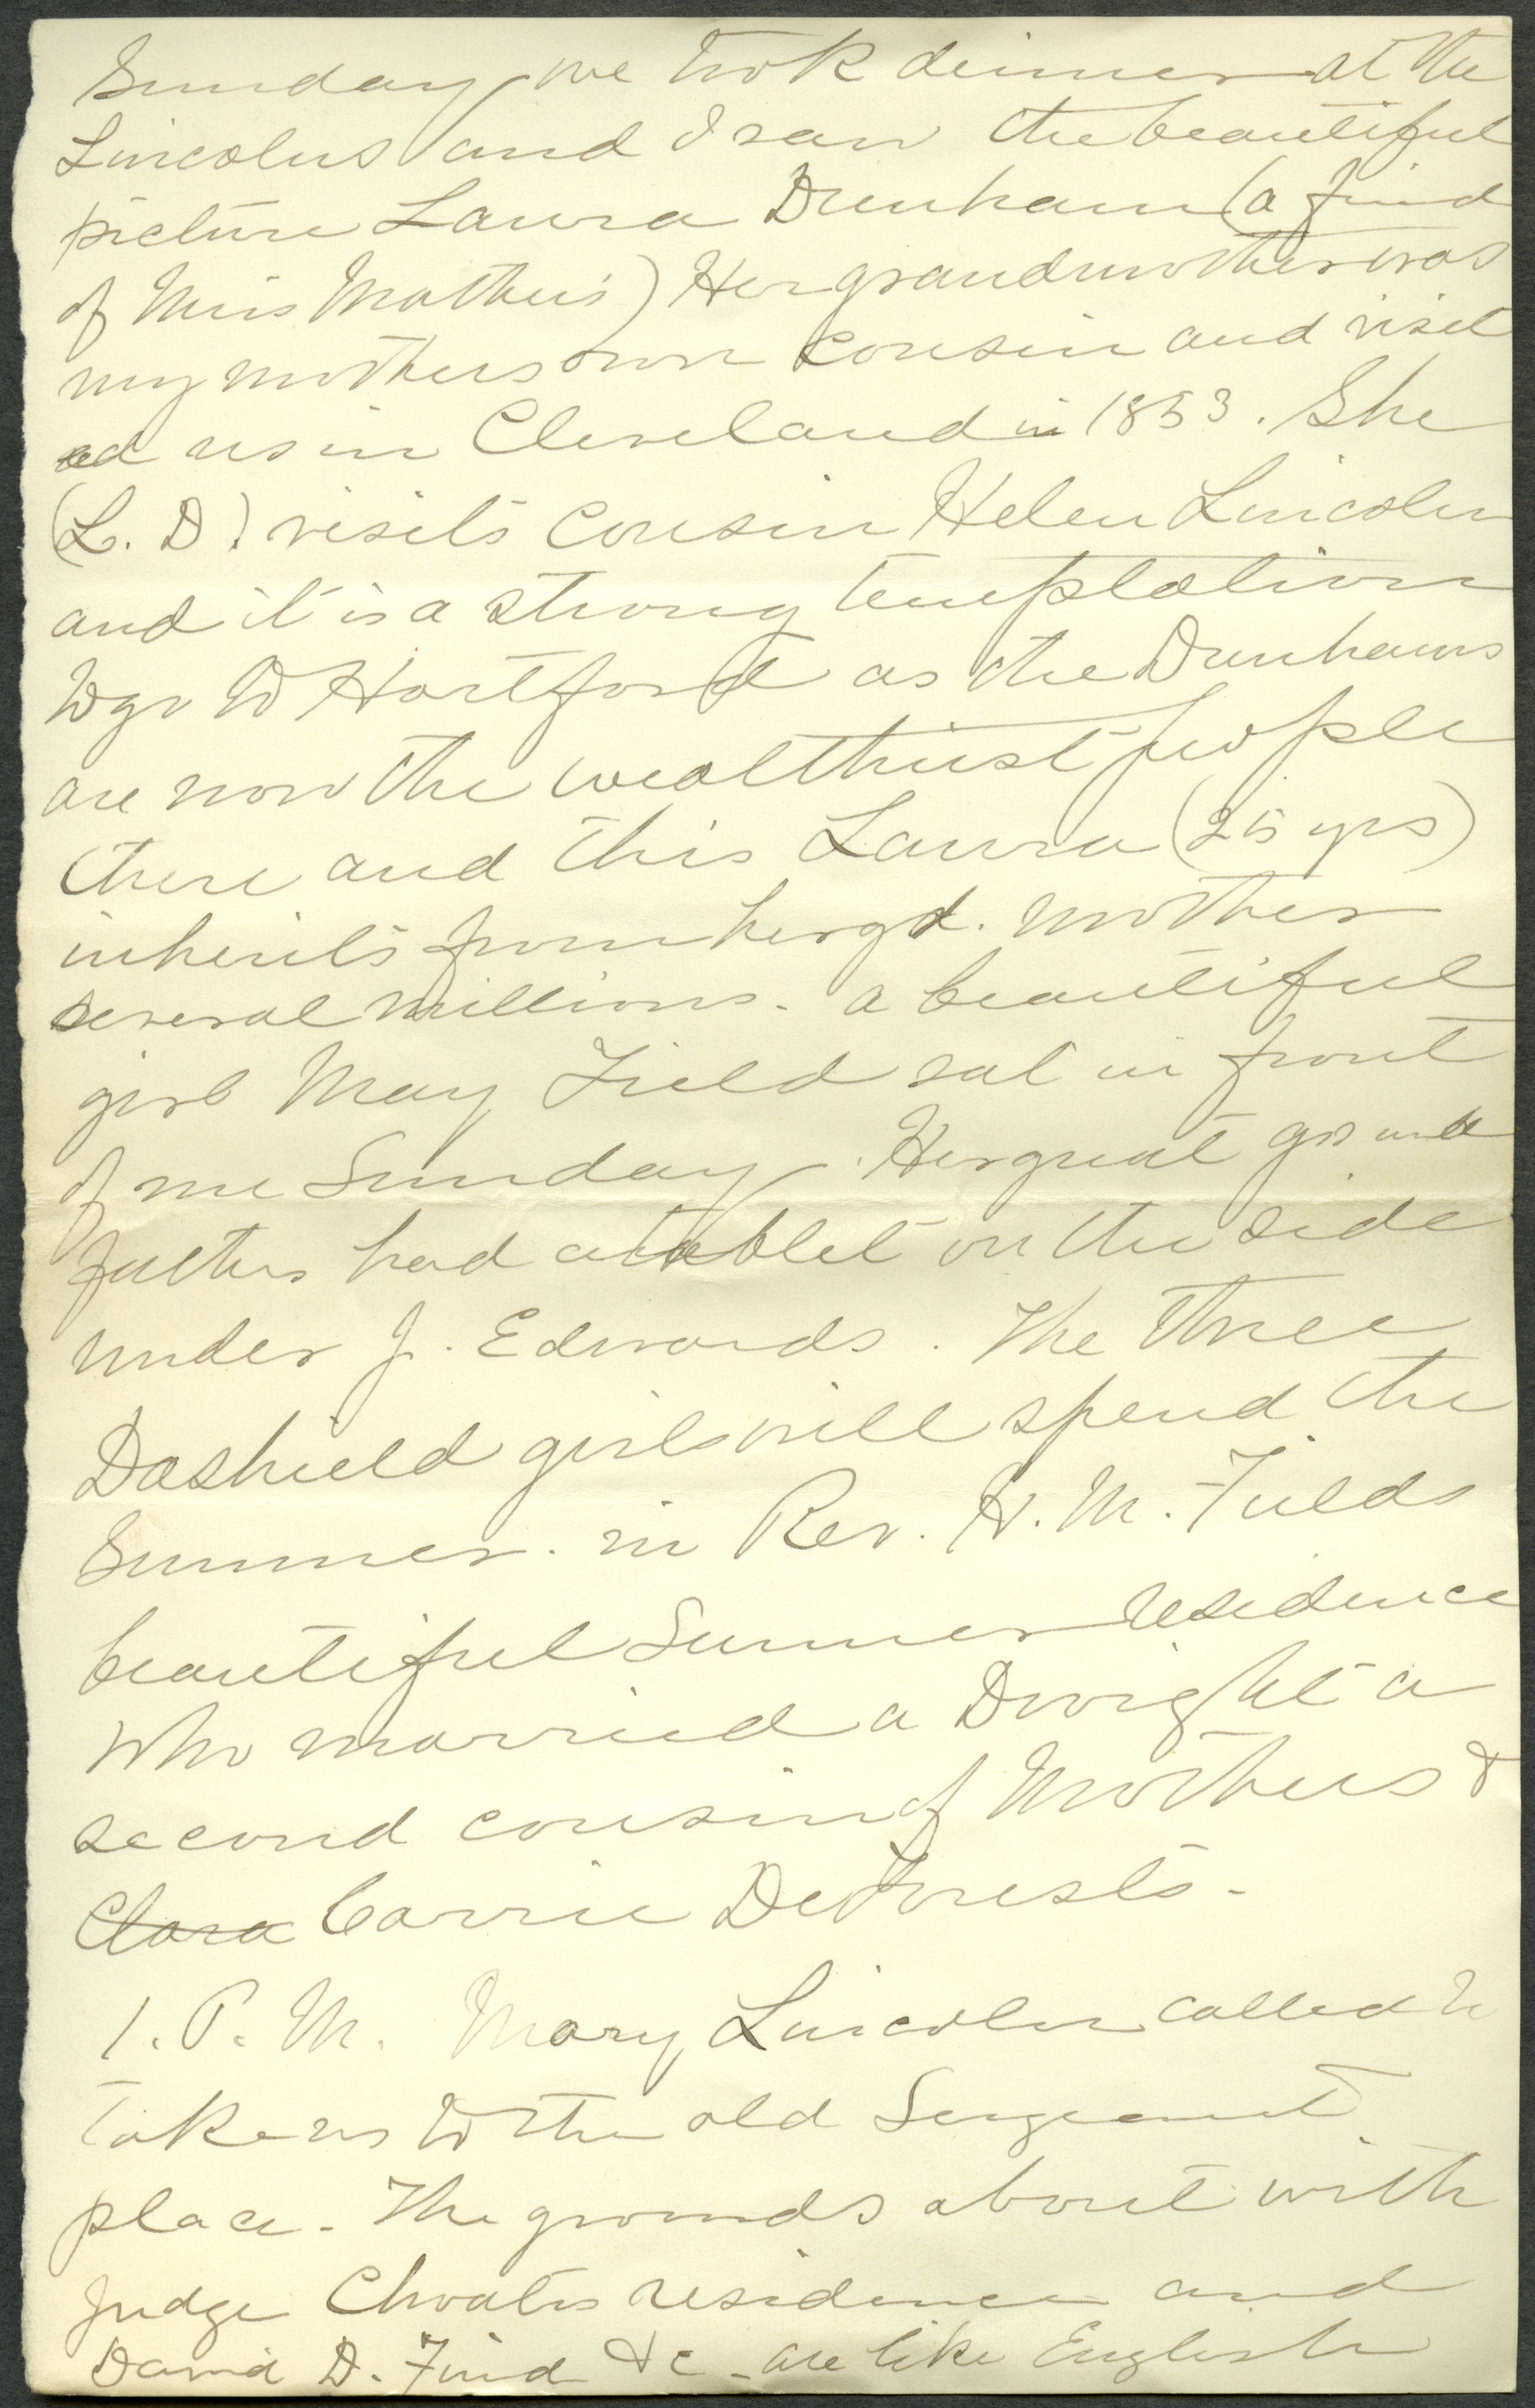 Sunday we took dinner at the
Lincolns and I saw the beautiful
picture Laura Dunham (a find
of Miss Mathers) Her grandmother was
my mothers own cousin and visit
ed us in Cleveland in 1853. She
(L. D.) visits Cousin Helen Lincoln
and it is a strong temptation
to go to Hartford as the Dunhams
are now the wealthiest people
there and this Laura (25 yrs)
inherits from her gd. mother
several millions. a beautiful
girl May Field sat in front
of me Sunday. Her great grand
father had a tablet on the side
under J. Edwards. The three
Dashield girls will spend the
Summer. in Rev. H. M. Fields
beautiful Summer residence
who married a Dwight a
second cousin of Mothers &
Clara Carrie DeForests -
1. P. M. Mary Lincoln called to
take us to the old Sergeant
place - The grounds about with
Judge Choates residence and
David D. Field &c - are like English